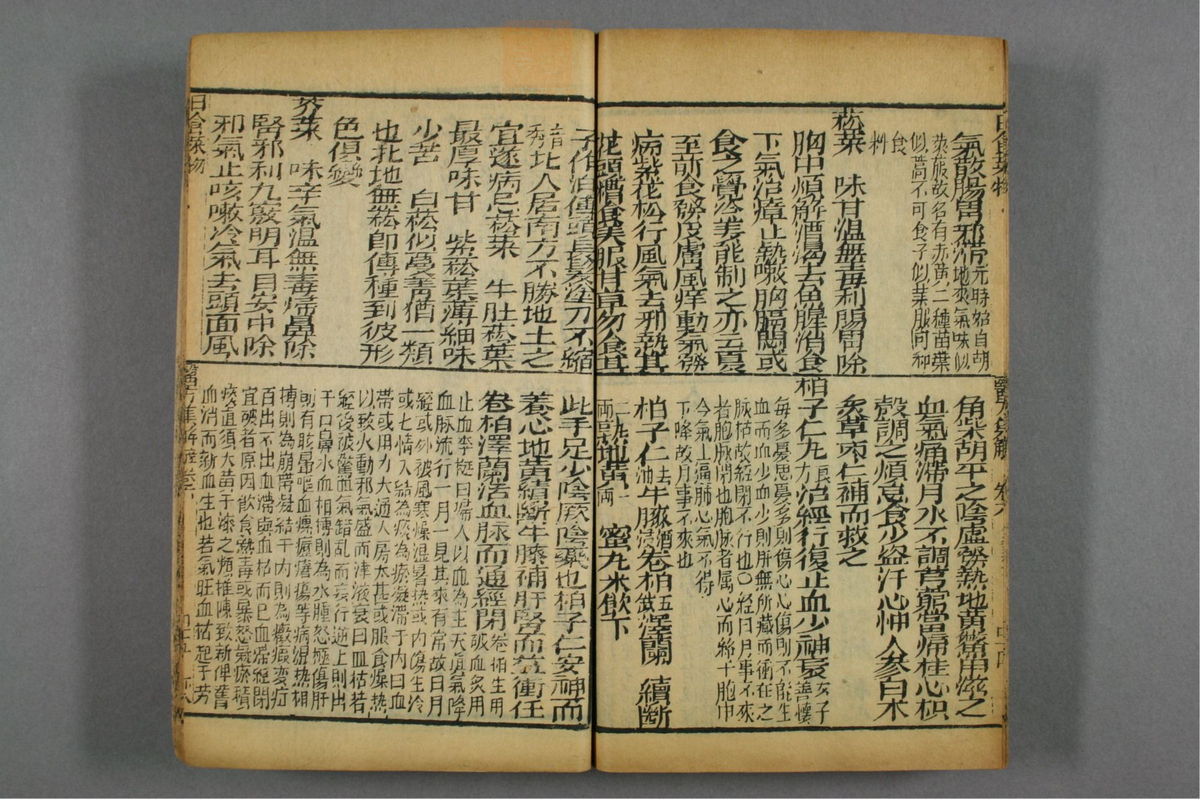 氣散腸胃邪滯元時始自胡
地來氣味似
食
料
菘菜　味甘溫無毒利腸胃除
胸中煩解酒渴去魚腥消食
下氣治瘴止熱嗽胸膈悶或
食之覺冷姜能制之亦云夏
至前食發皮膚風痒動氣發
病紫花菘行風氣去邪熱其
花頭糟食美服甘草勿食其
子作油傅頭長髮塗刀不鏽
北人居南方不勝地土之
宜遂病忌菘菜　牛肚菘葉
最厚味甘　紫菘葉薄細味
少苦　白菘似蔓菁猶一類
也北地無菘師傅種到彼形
色俱變
芥菜　味辛氣溫無毒歸鼻除
腎邪利九竅明耳目安中除
邪氣止咳嗽冷氣去頭面風
日食菜物
角柴胡平之陰虛發熱地黃鱉甲滋之
血氣痛滯月水不調芎藭當歸桂心枳
殼調之煩怠食少盜汗心忡人參白朮
炙草棗仁補而救之
柏子仁丸良方治經行復止血少神衰女子善懷
每多憂思憂多則傷心心傷則不能生
血而血少血少則肝無所藏而衝任之
脉枯故經閉不行也〇經曰月事不來
者胞脉閉也胞脉者屬心而絡于胞中
今氣上逼肺心氣不得
下降故月事不來也
柏子仁去油牛膝酒浸卷柏五錢澤蘭　續斷
二兩熟地黃一兩　蜜丸米飲下
此手足少陰厥陰藥也柏子仁安神而
養心地黃續斷牛膝補肝腎而益衝任
卷柏澤蘭活血脉而通經閉卷柏生用破血炙用
止血李梴曰婦人以血為主天真氣降
血脉流行一月一見其來有常故曰月
經或外被風寒燥濕暑熱或內傷生冷
或七情入結為痰為瘀凝滯于內曰血
滯或用力太過入房太甚或服食燥熱
以致火動邪氣盛而津液衰曰血枯若
經後被驚血氣錯亂而妄行逆上則出
于口鼻水血相搏則為水腫怒極傷肝
則有眩暈嘔血瘰癧瘡瘍等病濕熱相
搏則為崩帶凝結于內則為癥瘕變症
百出不出血滯與血枯而已血滯經閉
宜破者原因飲食熱毒或暴怒氣瘀積
痰直須大黃干漆之類推陳致新俾舊
血消而新血生也若氣旺血枯起于勞